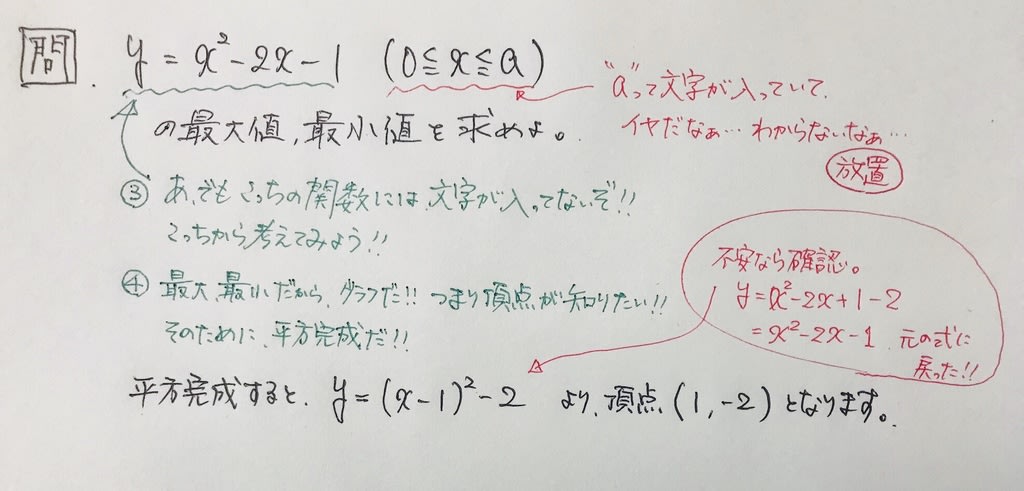 問. y = x² - 2x - 1 (0 ≦ x ≦ a)
の最大値, 最小値を求めよ。
"a"って文字が入っていて、
イヤだなぁ… わからないなぁ…
放置
③ あ、でもこっちの関数には、文字が入ってないぞ!!
こっちから考えてみよう!!
④ 最大、最小だから、グラフだ!! つまり頂点が知りたい!!
そのために、平方完成だ!!
不安なら確認。
y = x² - 2x + 1 - 2
= x² - 2x - 1 元の式に
戻った!!
平方完成すると、y = (x - 1)² - 2 より、頂点 (1, -2) となります。